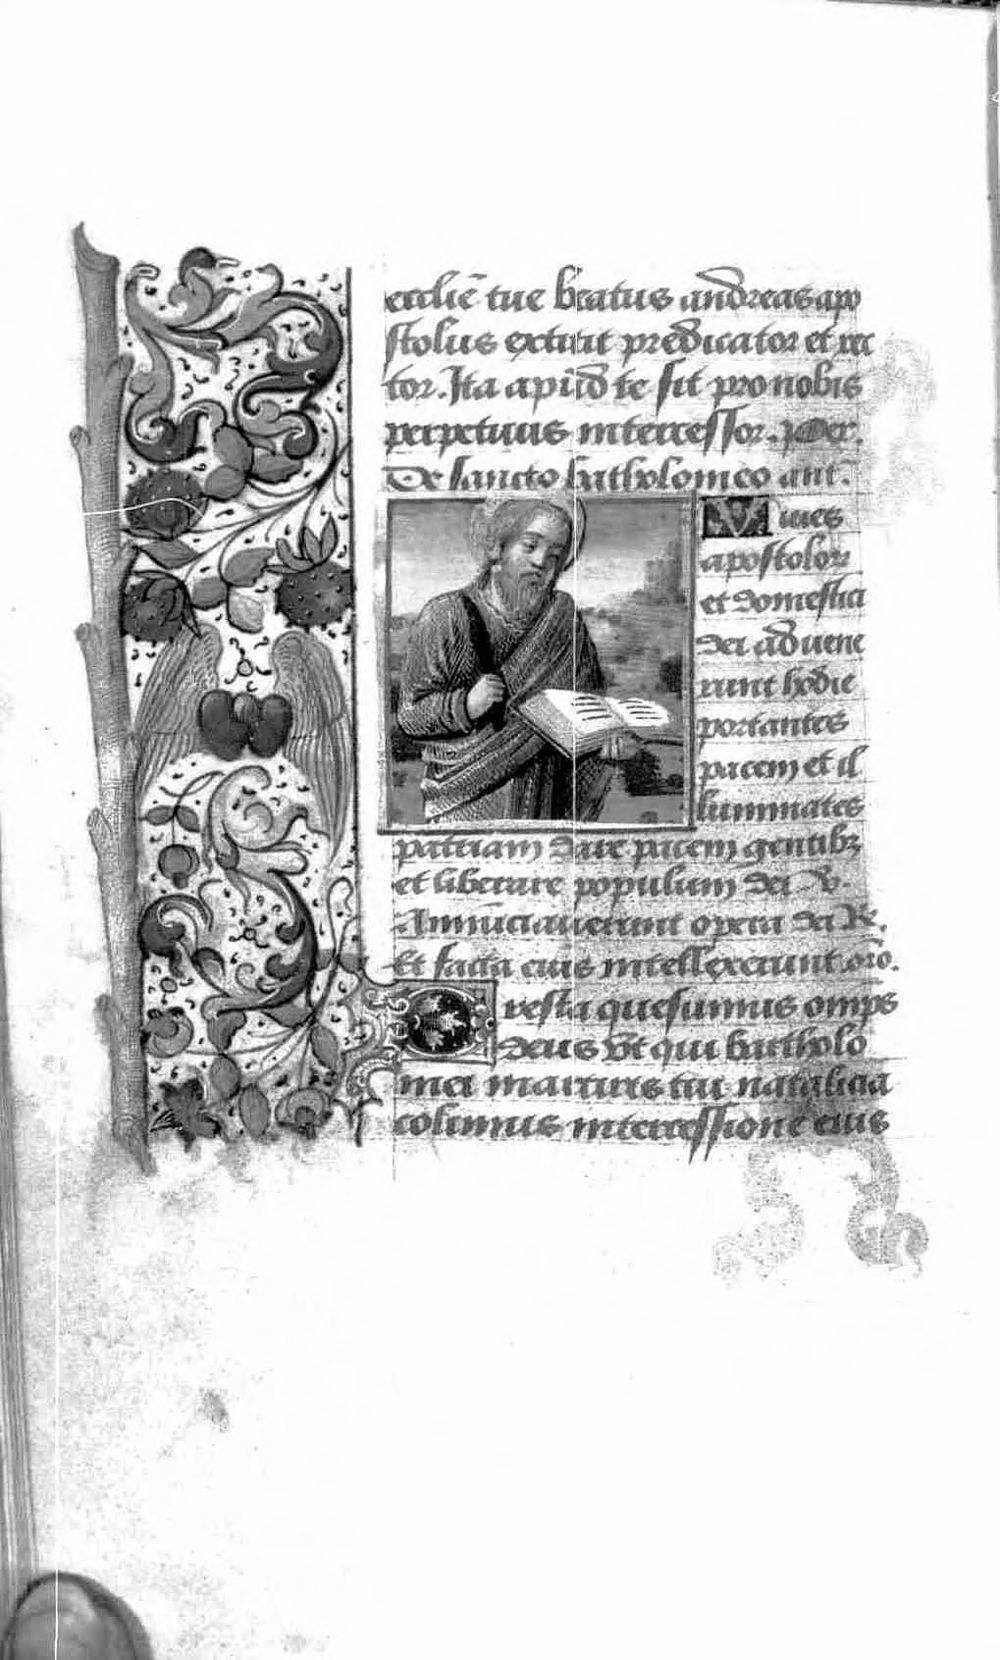 ecclie tue beatus andreas apo
stolus extitit predicator et rec
tor. Ita apud te sit pro nobis
perpetuus intercessor. Per.
De sancto bartholomeo ant.
Viues
apostolor
et domestici
dei aduene
runt hodie
portantes
pacem et il
luminates
patriam dare pacem gentibz
et liberare populum dei v.
Annunciauerunt opera dei R.
Et facta eius intellexerunt. oro.
resta quesumus omps
deus vt qui bartholo
mei martiris tui natalicia
colimus intercessione eius